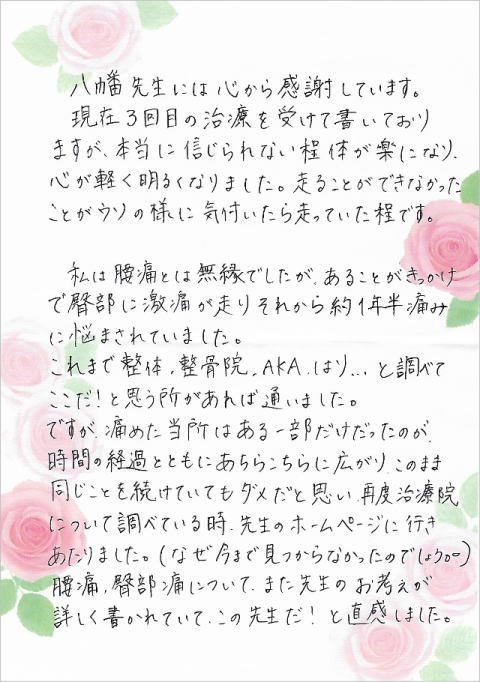 八幡先生には心から感謝しています。
現在3回目の治療を受けて書いており
ますが、本当に信じられない程体が楽になり、
心が軽く明るくなりました。走ることができなかった
ことがウソの様に気付いたら走っていた程です。
私は腰痛とは無縁でしたが、あることがきっかけ
で臀部に激痛が走りそれから約1年半痛み
に悩まされていました。
これまで整体,整骨院,AKA,はり...と調べて
ここだ!と思う所があれば通いました。
ですが、痛めた当所はある一部だけだったのが、
時間の経過とともにあちらこちらに広がり、このまま
同じことを続けていてもダメだと思い、再度治療院
について調べている時、先生のホームページに行き
あたりました。(なぜ今まで見つからなかったのでしょうか)
腰痛,臀部痛について、また先生のお考えが
詳しく書かれていて、この先生だ!と直感しました。